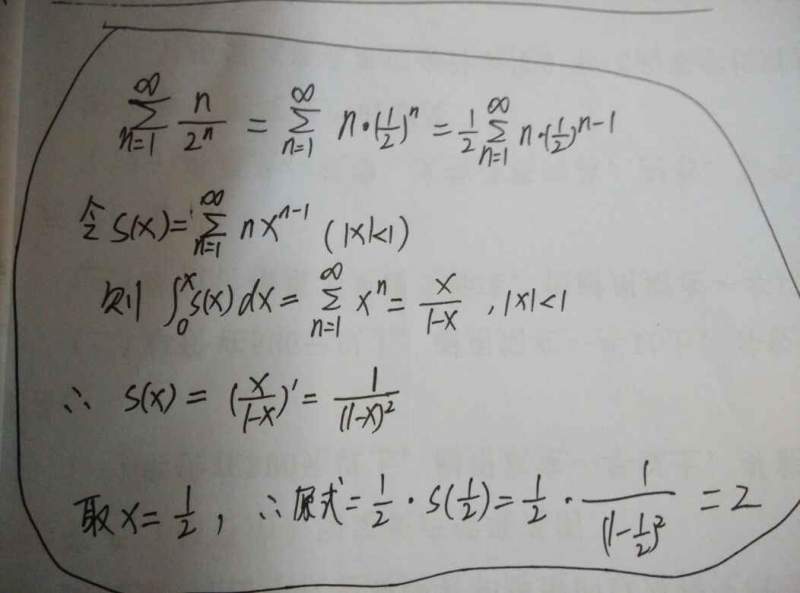 ∑_{n=1}^{∞} n/2^n = ∑_{n=1}^{∞} n·(1/2)^n = 1/2 ∑_{n=1}^{∞} n·(1/2)^{n-1}
令 S(x) = ∑_{n=1}^{∞} nx^{n-1} (|x|<1)
则 ∫_0^x S(x)dx = ∑_{n=1}^{∞} x^n = x/(1-x) , |x|<1
∴ S(x) = (x/(1-x))' = 1/(1-x)^2
取 x = 1/2 , ∴原式 = 1/2 · S(1/2) = 1/2 · 1/(1-1/2)^2 = 2